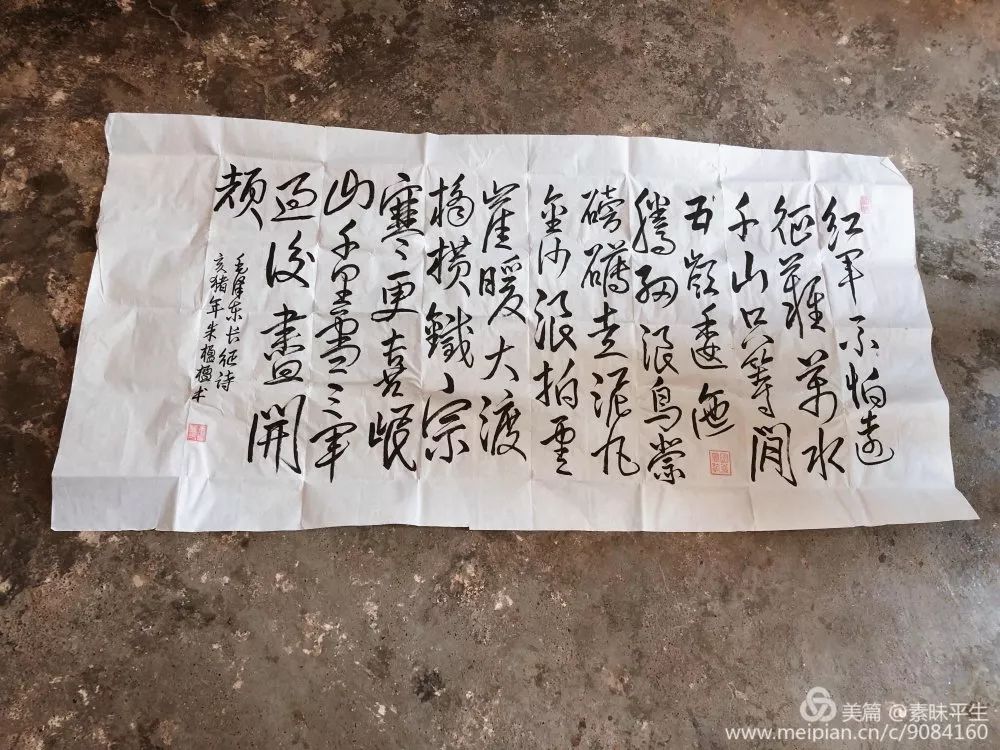 红军不怕遠
征難萬水
千山只等閒
五嶺逶迤
騰细浪烏蒙
磅礴走泥丸
金沙浪拍雲
崖暖大渡
橋横鐵索
寒更喜岷
山千里雪三军
過後盡開
颜
毛泽东长征诗
亥猪年米楹楹书
美篇 @素昧平生
www.meipian.cn/c/9084160